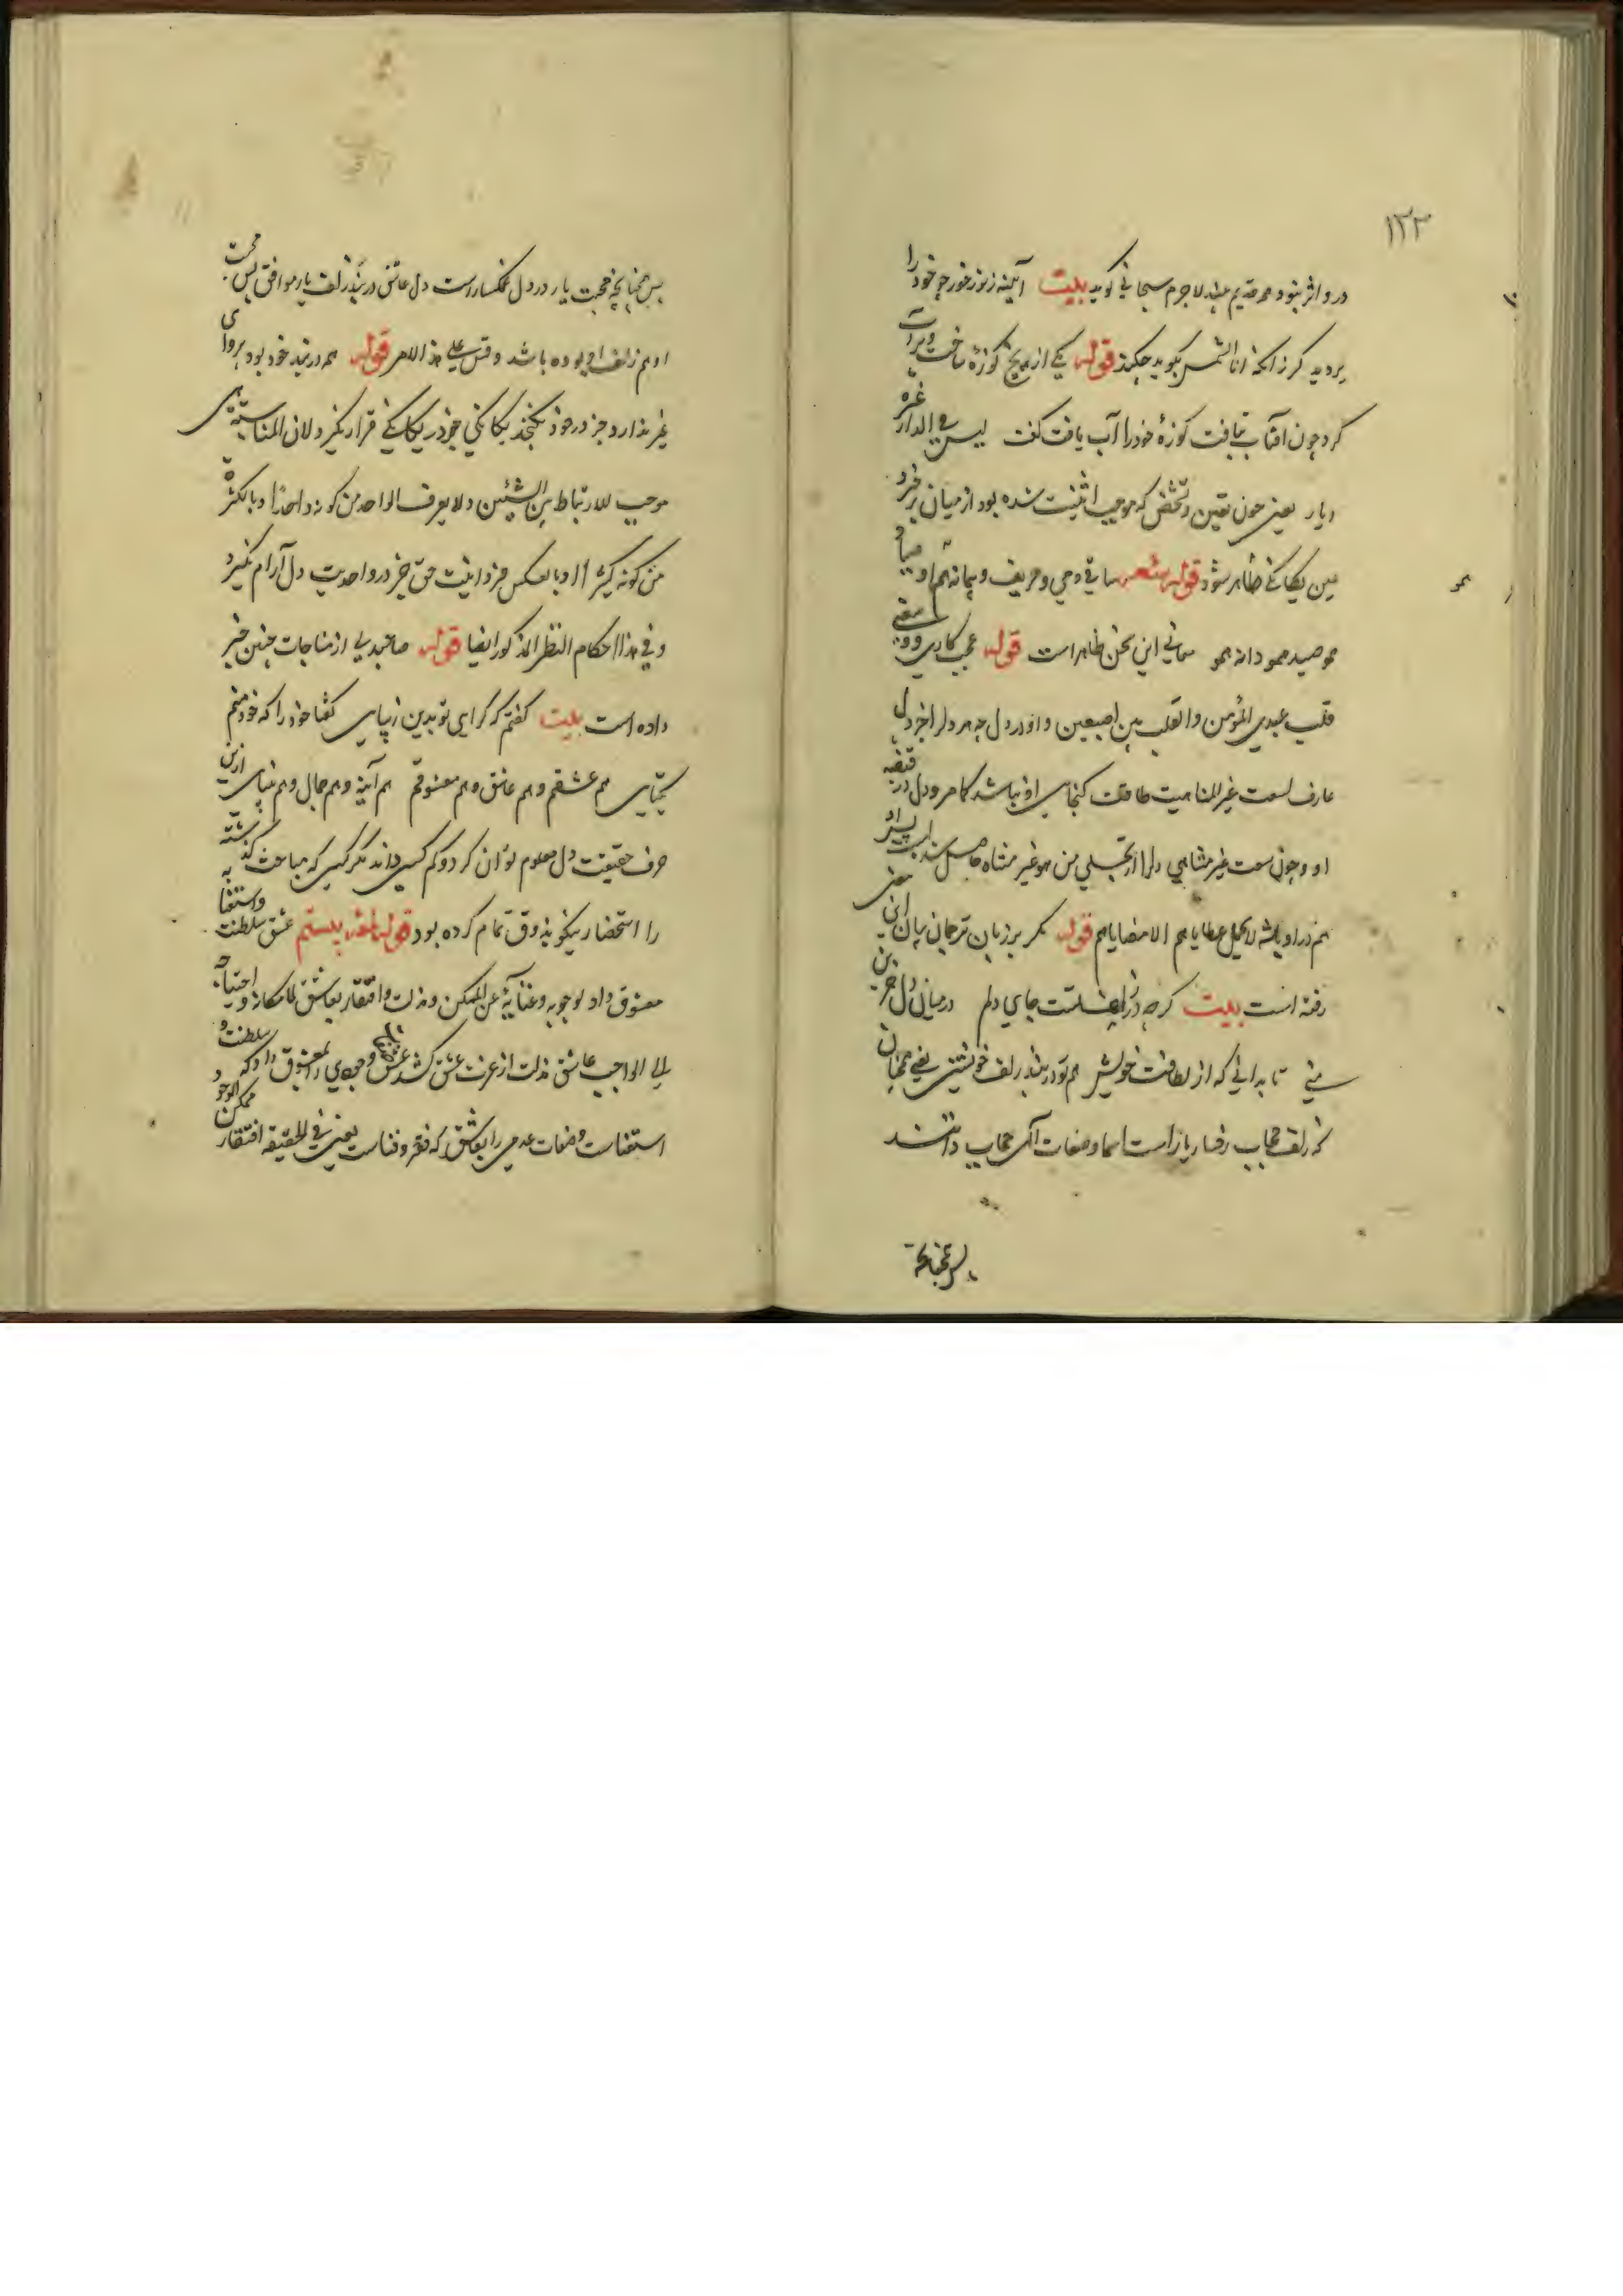 ۱۲۲
درو اثر نبود همه قدیم بیند لاجرم سبحانی گوید بیت آیینه ز نور خور چو خود را
پر دید گر زانکه انا الشمس نگوید چکند قوله یکی از یخ کوزهٔ ساخت و پر آب
کرد چون آفتاب بتافت کوزهٔ خود را آب یافت گفت لیس فی الدار غیره
دیار یعنی چون تعین و تشخص که موجب اثنینیت شده بود از میان برخیزد
عین یگانگی ظاهر شود قوله شعر ساقی و می و حریف و پیمانه هم او صیاد
همو صید همو دانه همو معانی این سخن ظاهر است قوله عجب کاری و وسعنی
قلب عبدی المؤمن و القلب بین اصبعین و او در دل چه هر دلرا جز دل
عارف لسعت غیر المتناهیت طاقت گنجایی او نباشد کما مر و دل در قبضه
او و چون سعت غیر متناهی دلرا از تجلی من هو غیر متناه حاصل شده است پس او
هم در او باشد لا یحمل عطایاهم الا مطایاهم قوله مگر بر زبان ترجمان بیان این معنی
رفته است بیت گرچه در زلف تست جای دلم در میان دل حزین
منی تا بدانی که از لطافت خویش هم تو در بند زلف خویشتنی یعنی همچنان
که زلف حجاب رخسار یار است اسما و صفات آلهی حجاب ذاتند
پس چنانچه
پس چنانچه محبت یار در دل غمگسار است دل عاشق در بند زلف یار موافق پس محبت
او هم زلف او بوده باشد و قس علی هذا الامر قوله هم در بند خود بود پروای
غیر ندارد جز در خود نگنجد یگانگی جز در یگانگی قرار نگیرد لان المناسبة هی
موجب للارتباط بین الشیئین و لا یعرف الواحد من کونه واحدا و بالکثرة
من کونه کثیرا و بالعکس جز در اینیت حق جز در واحدیت دل آرام نگیرد
و فی هذا احکام النظر المذکور ایضا قوله صاحبدلی از مناجات چنین خبر
داده است بیت گفتم که کرایی تو بدین زیبایی گفتا خود را که خود منم
یکتایی هم عشقم و هم عاشق و هم معشوقم هم آینه و هم جمال و هم بینایی ازین
حرف حقیقت دل معلوم توان کرد و کم کسی داند مگر کسی که مباحث گذشته
را استحضار نیکو بذوق تمام کرده بود قوله لمعهٔ بیستم عشق سلطنت و استغنا به
معشوق داد لوجوبه و غنایه عن الممکن و مذلت و افتقار بعاشق لامکانه و احتیاجه
الی الواجب عاشق مذلت از عزت عشق کشد وجودی را بمعشوق داد که سلطنت و
استغناست و صفات عدمی را بعاشق که فقر و فناست یعنی فی الحقیقه افتقار ممکن الوجود